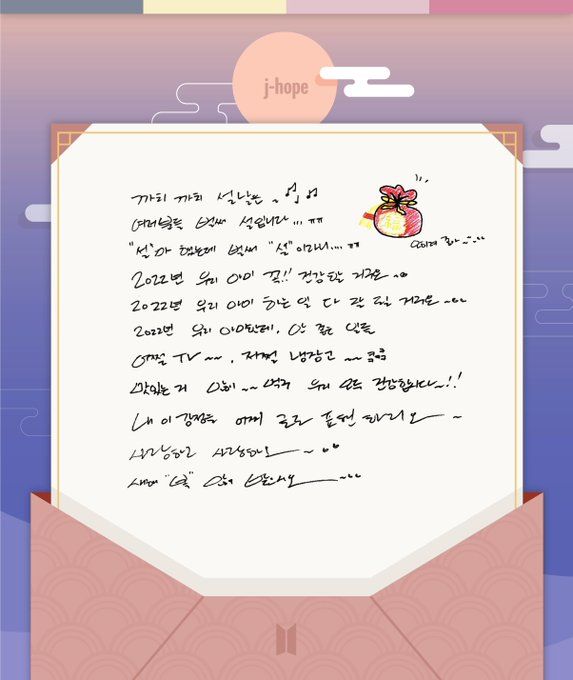 j-hope
까치 까치 설날은 ~ ♪♪
여러분들 벌써 설입니다... ㅠㅠ
"설"마 했는데 벌써 "설"이라니... ㅠㅠ
2022년 우리 아미 꼭!! 건강할 거구요 ~
2022년 우리 아미 하는 일 다 잘 될 거구요 ~
2022년 우리 아미한테, 안 좋은 일들
어쩔 TV ~~, 저쩔 냉장고 ~~ 쿠쿠
맛있는 거 많이 ~~ 먹구 우리 모두 건강합시다~!!
내 이 감정을 어찌 글로 표현 하리오 ~
사랑하고 사랑하오 ~
새해 "복" 많이 받으시오 ~